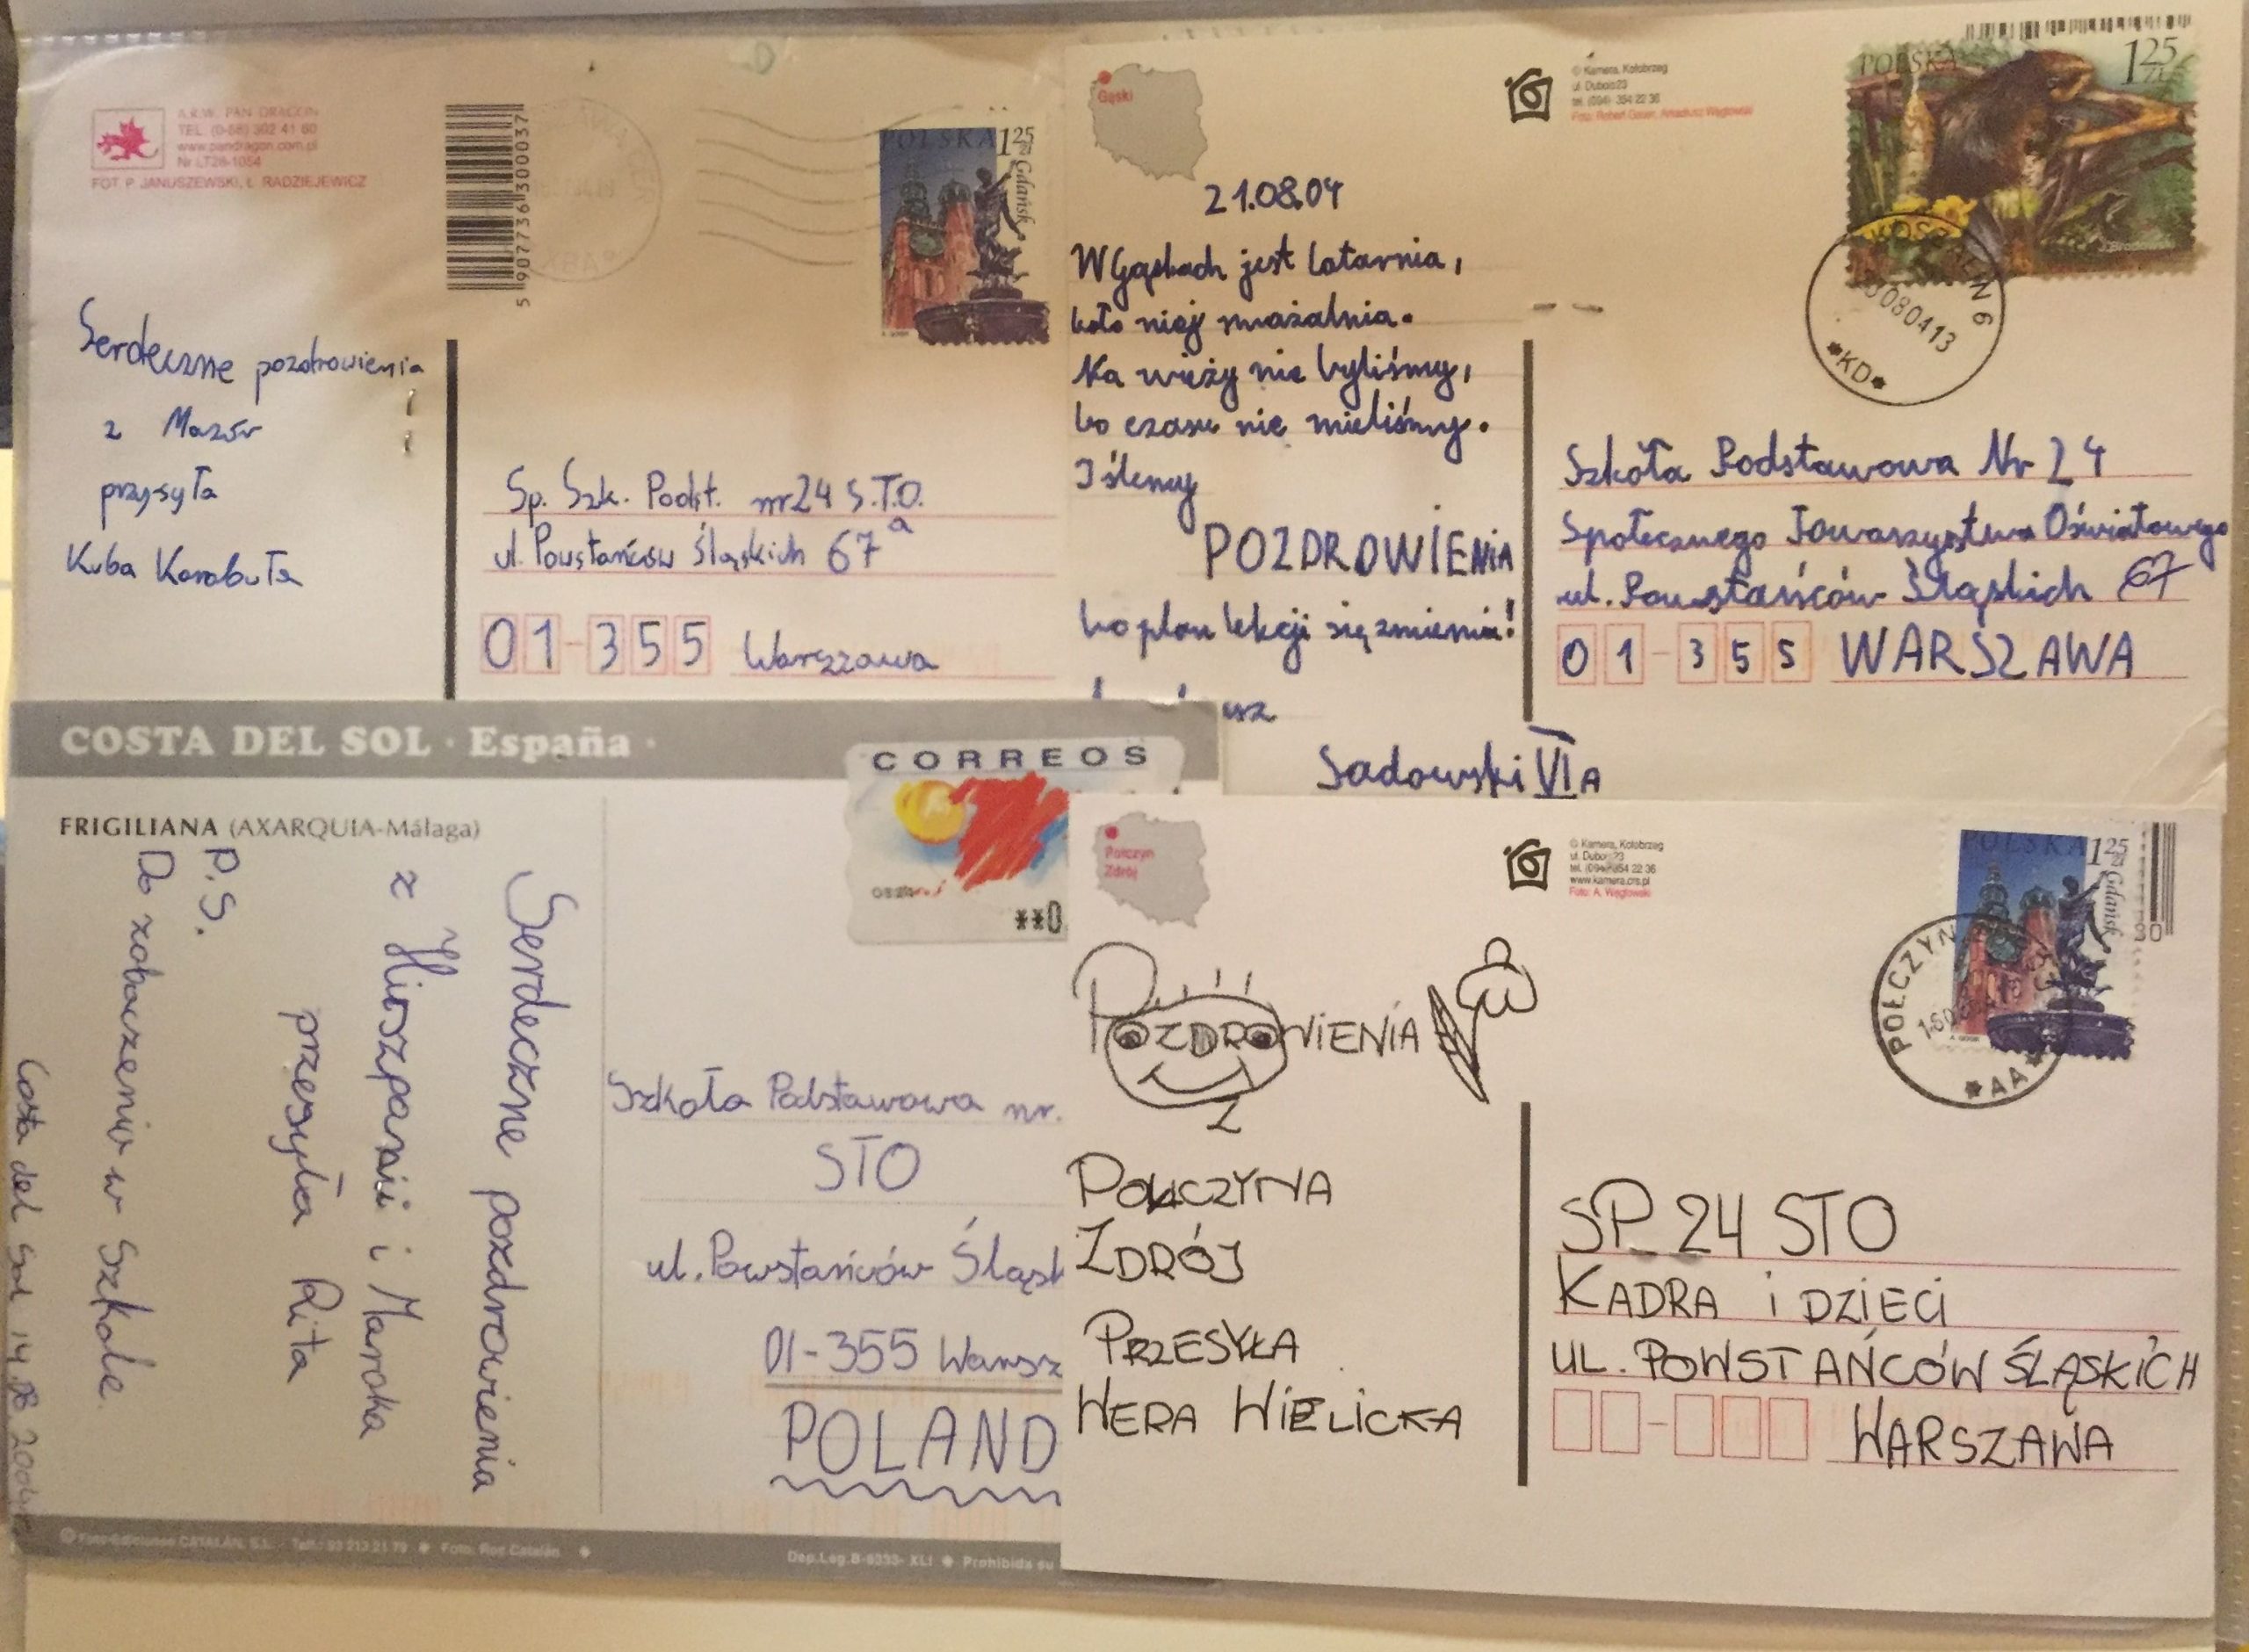 A.R.W. PAN DRAGON
TEL. (0-58) 302 41 60
www.pandragon.com.pl
Nr LT28-1054
FOT. P. JANUSZEWSKI, Ł. RADZIEJEWICZ
5 907736 300037
POLSKA 1 25 zł
Gdańsk
Serdeczne pozdrowienia
z Mazur
przysyła
Kuba Karabuła
Sp. Szk. Podst. nr 24 S.T.O.
ul. Powstańców Śląskich 67a
01-355 Warszawa
Gąski
© Kamera, Kołobrzeg
ul. Dubois 23
tel. (094) 354 22 36
POLSKA 1 25 ZŁ
21.08.04
W Gąskach jest latarnia,
koło niej smażalnia.
Na wieży nie byliśmy,
bo czasu nie mieliśmy.
I ślemy
POZDROWIENIA
bo plan lekcji się zmienia!
usz
Sadowski VIA
KOSZALIN 6
*KD*
Szkoła Podstawowa Nr 24
Społecznego Towarzystwa Oświatowego
ul. Powstańców Śląskich 67
01-355 WARSZAWA
COSTA DEL SOL · España ·
CORREOS
**0
FRIGILIANA (AXARQUIA-Málaga)
Serdeczne pozdrowienia
z Hiszpanii i Maroka
przesyła Rita
P.S.
Do zobaczenia w Szkole.
Costa del Sol 14.08.2004
Szkoła Podstawowa nr.
STO
ul. Powstańców Śląsk
01-355 Warsz
POLAND
Tel.: 93 213 21 79 Foto: Roc Catalán
Dep. Leg. B-6333-XLI Prohibida su
Połczyn
Zdrój
© Kamera, Kołobrzeg
ul. Dubois 23
tel. (094) 354 22 36
www.kamera.crs.pl
Foto: A. Węglowski
POLSKA 1 25 zł
Gdańsk
POŁCZYN
*AA*
POZDROWIENIA
Z
POŁCZYNA
ZDRÓJ
PRZESYŁA
WERA WIELICKA
SP 24 STO
KADRA i DZIECI
UL. POWSTAŃCÓW ŚLĄSKICH
WARSZAWA